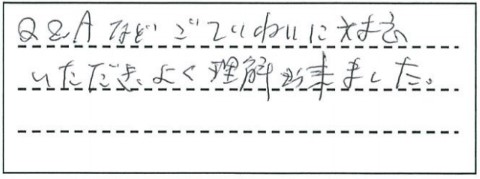 Q&Aなどごていねいに対応
いただき、よく理解出来ました。